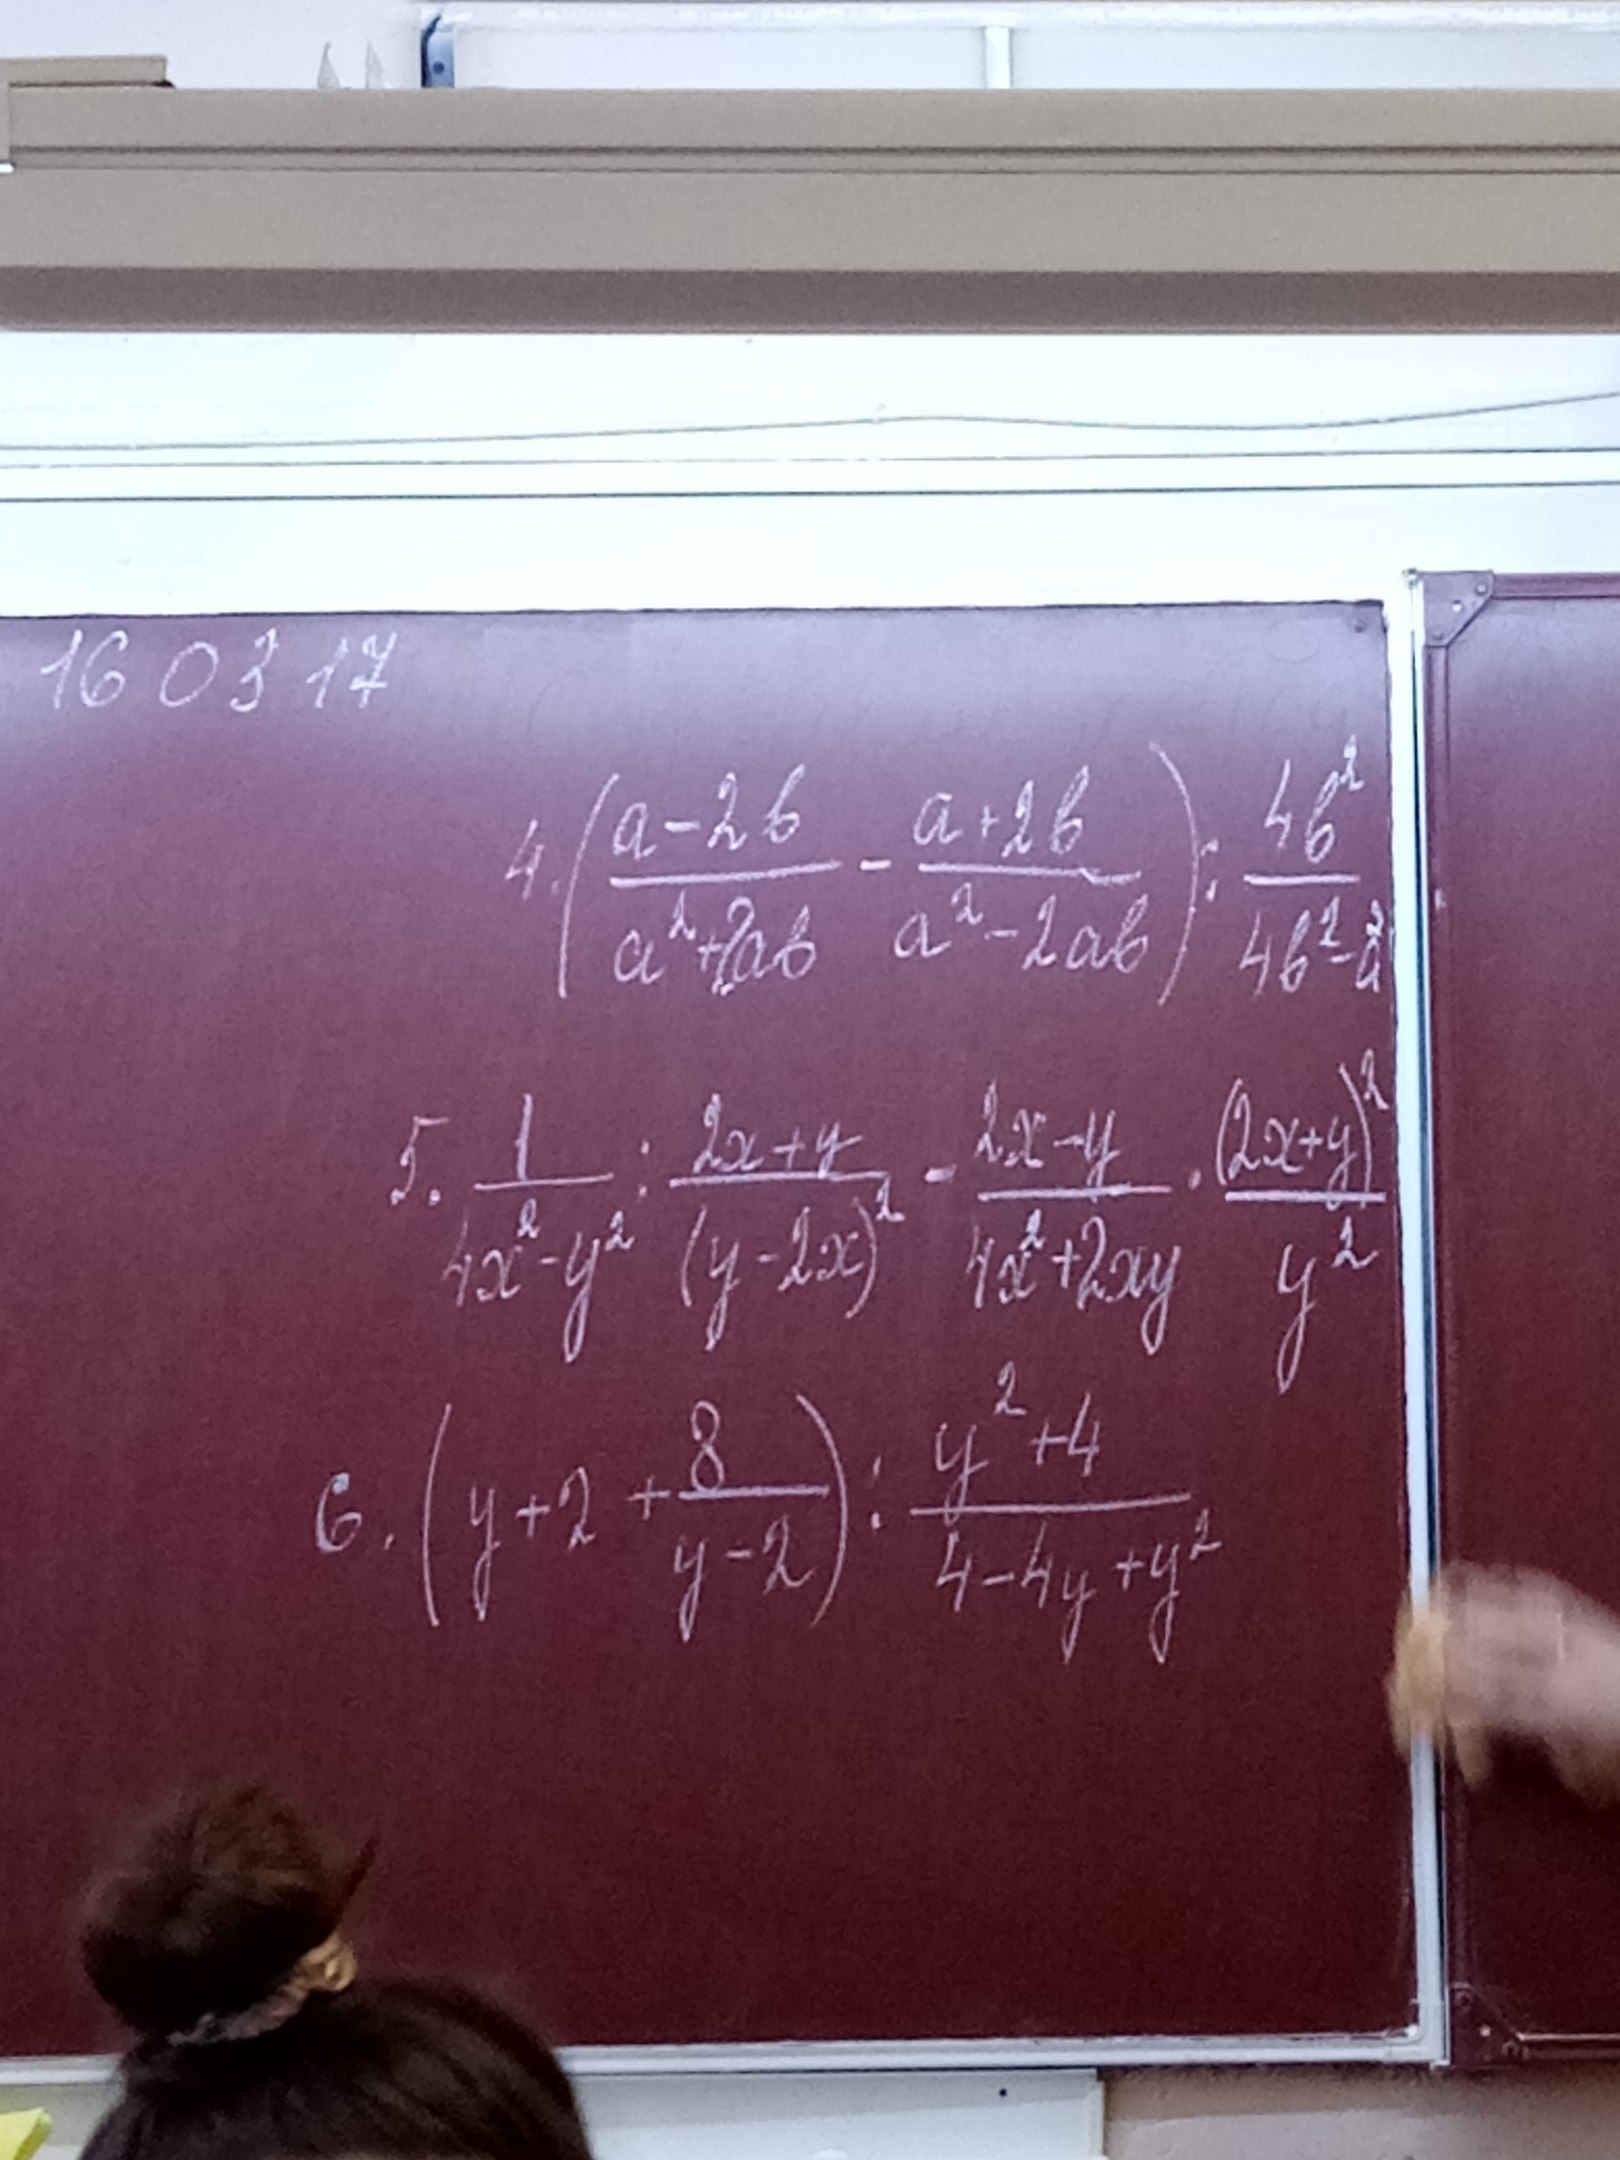 16 03 17
4. ( (a-2b)/(a²+2ab) - (a+2b)/(a²-2ab) ) : 4b²/(4b²-a²)
5. 1/(4x²-y²) : (2x+y)/(y-2x)² - (2x-y)/(4x²+2xy) · (2x+y)²/y²
6. ( y+2 + 8/(y-2) ) : (y²+4)/(4-4y+y²)